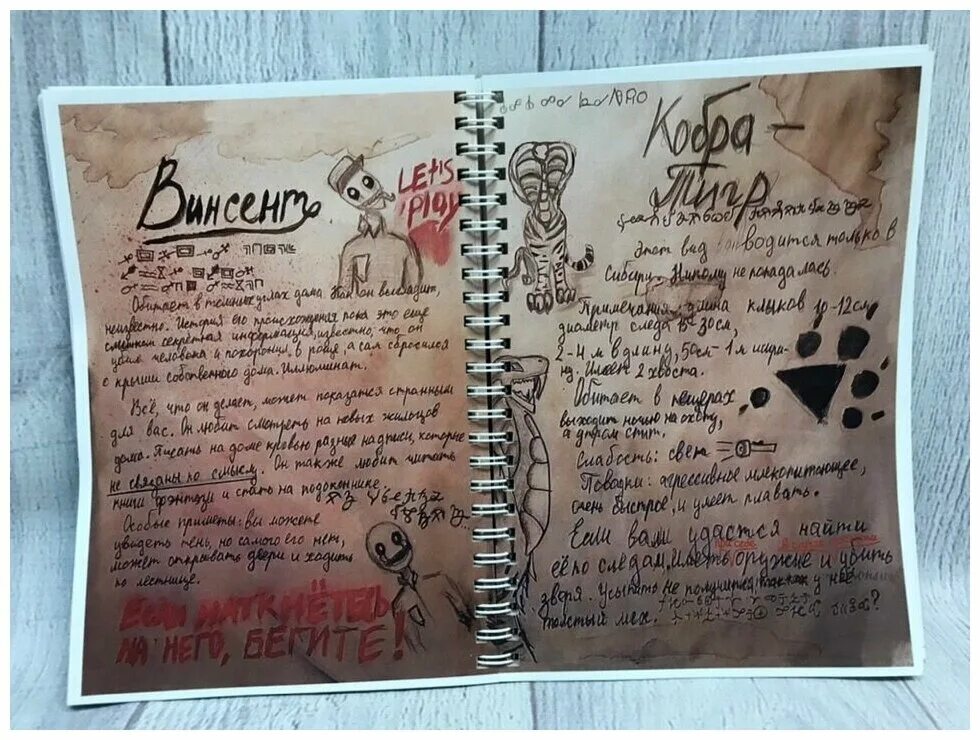 Винсент
LEt's
Play
Обитает в темных углах дома. Как он выглядит,
неизвестно. История его происхождения пока это еще
секретная информация, известно, что он
убил человека и похоронил в роще, а сам сбросился
с крыши собственного дома. Иллюминат.
Всё, что он делает, может показатся странным
для вас. Он любит смотреть на новых жильцов
дома. Писать на доме кровью разные надписи, которые
не связаны по смыслу. Он также любит читать
книги фэнтези и спать на подоконнике.
Особые приметы: вы можете
увидеть тень, но самого его нет,
может открывать двери и ходить
по лестнице.
Если наткнётесь
на него, БЕГИТЕ!
Кобра -
Тигр
Этот вид водится только в
Сибири. Никому не попадалась.
Примечания: длина клыков 10-12см,
диаметр следа 15-30см,
2-4 м в длину, 50см-1м шири-
ну. Имеет 2 хвоста.
Обитает в пещерах
выходит ночью на охоту,
а днём спит.
Слабость: свет
Повадки: агрессивное млекопитающее,
очень быстрое, и умеет плавать.
Если вам удастся найти
её по следам, иметь оружие и убить
зверя. Усыпить не получится, у неё
толстый мех.